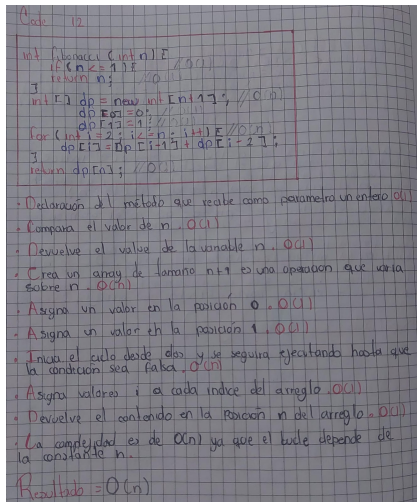 Code 12
int fibonacci (int n) {
if (n <= 1) { //O(1)
return n; //O
}
int [] dp = new int [n+1]; //O(n)
dp [0] = 0;
dp [1] = 1;
for (int i = 2; i <= n; i++) { //O(n)
dp [i] = dp [i-1] + dp [i-2];
}
return dp [n]; //O
· Declaración del método que recibe como parametro un entero O(1)
· Compara el valor de n. O(1)
· Devuelve el valor de la variable n. O(1)
· Crea un array de tamaño n+1 es una operacion que varia
sobre n. O(n)
· Asigna un valor en la posición 0. O(1)
· Asigna un valor en la posición 1. O(1)
· Inicia el ciclo desde dos y se seguira ejecutando hasta que
la condición sea falsa. O(n)
· Asigna valores i a cada indice del arreglo. O(1)
· Devuelve el contenido en la posición n del arreglo. O(1)
· La complejidad es de O(n) ya que el bucle depende de
la constante n.
Resultado = O(n)